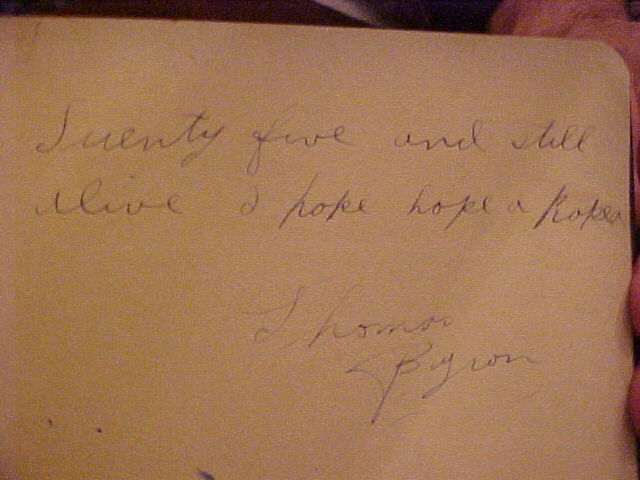 Twenty five and still
alive I hope hope a
Thomas
Byron